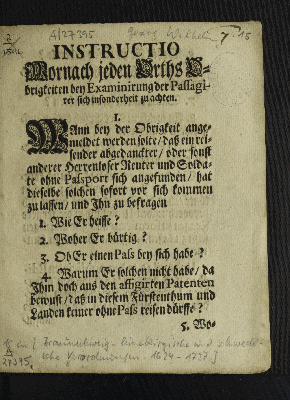 A/27395
Georg Wilhelm
7. 15
INSTRUCTIO
Wornach jeden Orths O-
brigkeiten bey Examinirung der Passagi-
rer sich insonderheit zu achten.
I.
WAnn bey der Obrigkeit ange-
meldet werden solte/ daß ein rei-
sender abgedanckter/ oder sonst
anderer Herrenloser Reuter und Solda-
te ohne Paßport sich angefunden/ hat
dieselbe solchen sofort vor sich kommen
zu lassen/ und Jhn zu befragen
1. Wie Er heisse?
2. Woher Er bürtig?
3. Ob Er einen Paß bey sich habe?
4. Warum Er solchen nicht habe/ da
Jhm doch aus den affigirten Patenten
bewust/ daß in diesem Fürstenthum und
Landen keiner ohne Paß reisen dürffe?
5. Wo-
in [Braunschweig-Lüneburgische und
Verordnungen 1624-1727]
27395